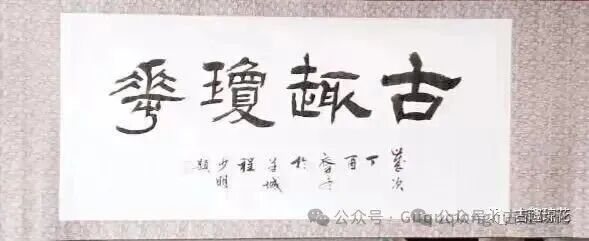 古趣瓊華
歲次
丁
酉
於
羊城
程
少明
題
公众号
公众号
古趣琼花